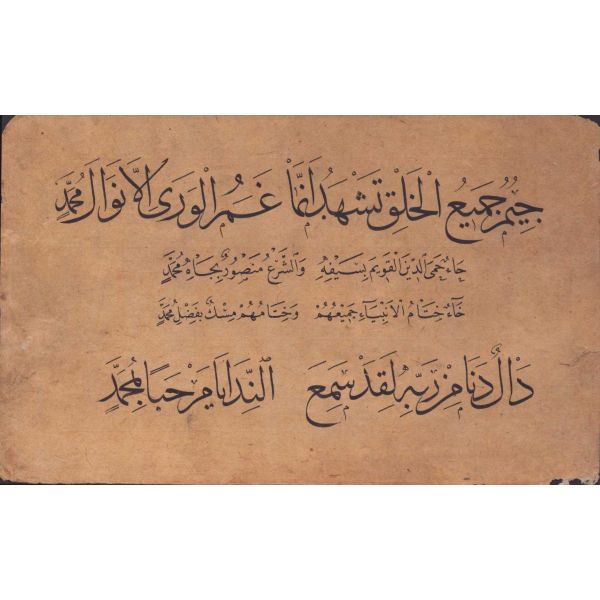 جِيْمٌ جَمِيْعُ الْخَلْقِ تَشْهَدُ اَنَّمَا غَمُرَ الْوَرَى الَّا نَوَالُ مُحَمَّدٍ
حَاءٌ حَمَى الدِّيْنَ الْقَوِيْمَ بِسَيْفِهِ وَالشَّرْعُ مَنْصُوْرٌ بِجَاهِ مُحَمَّدٍ
خَاءٌ خِتَامُ الْاَنْبِيَاءِ جَمِيْعُهُمْ وَخِتَامُهُمْ مِسْكٌ بِفَضْلِ مُحَمَّدٍ
دَالٌ دَنَا مِنْ رَبِّهِ لَقَدْ سَمِعَ النِّدَا يَا مَرْحَبًا بِمُحَمَّدٍ